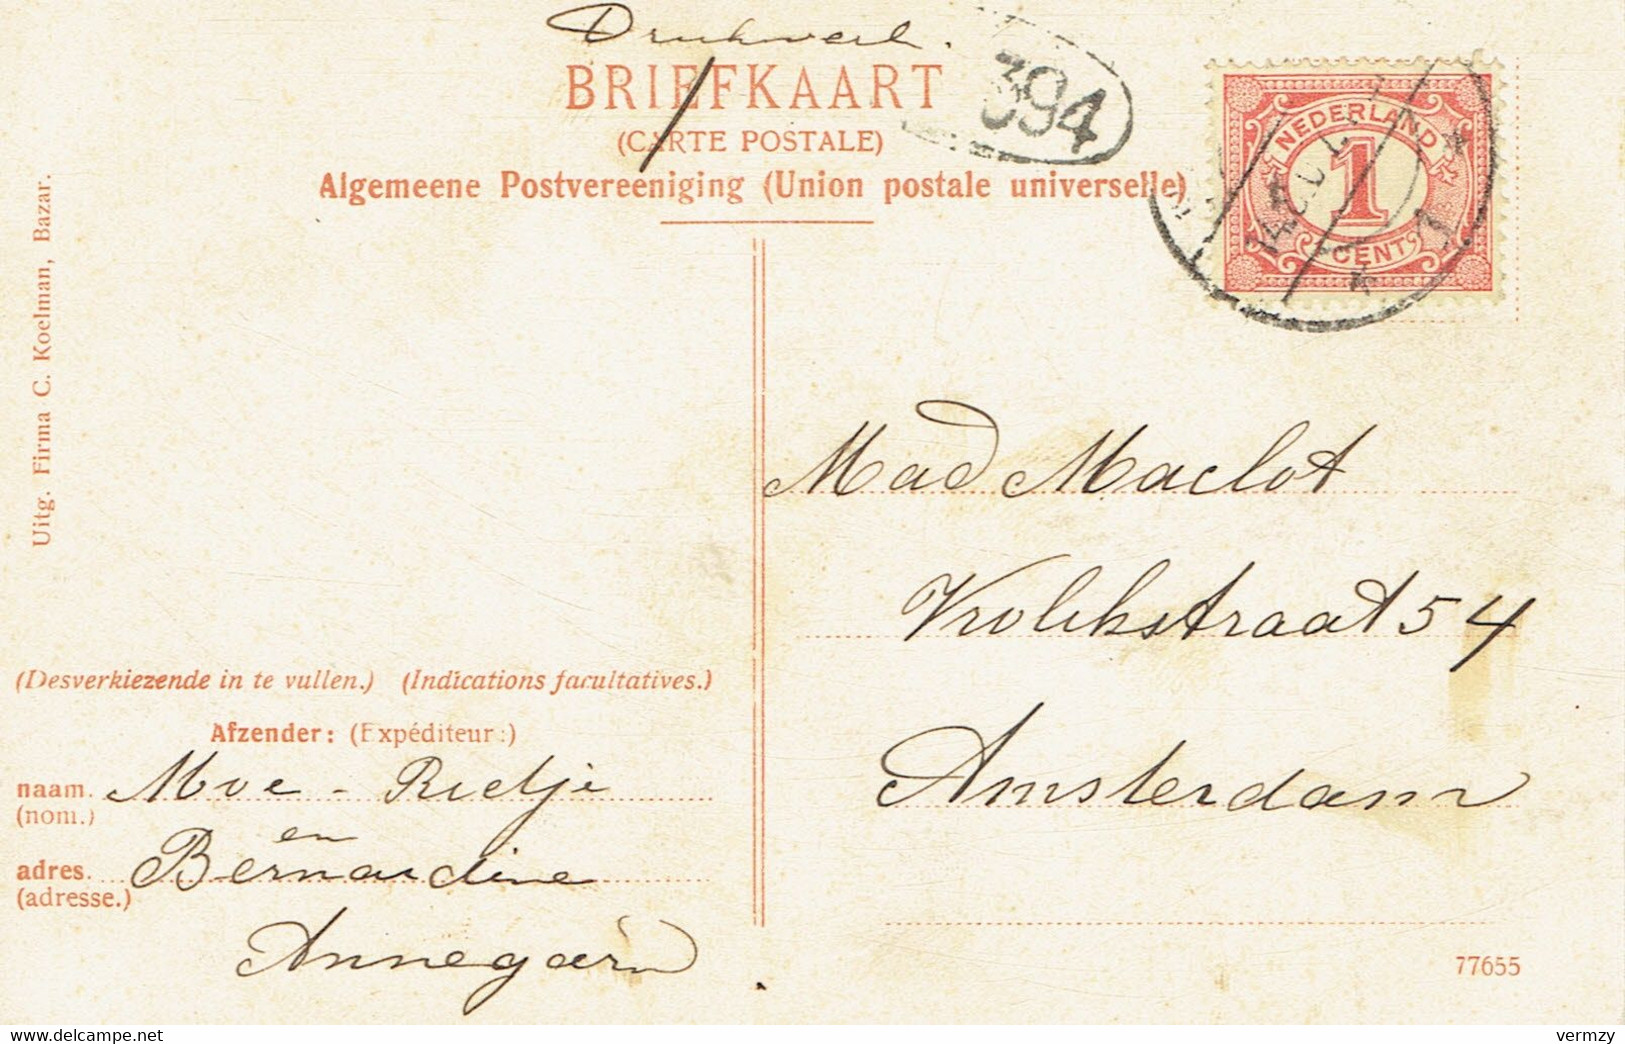 Drukwerk.
BRIEFKAART
(CARTE POSTALE)
Algemeene Postvereeniging (Union postale universelle)
394
NEDERLAND
1
CENT
Uitg. Firma C. Koelman, Bazar.
Mad Maclot
Vrolikstraat 54
Amsterdam
(Desverkiezende in te vullen.) (Indications facultatives.)
Afzender: (Expéditeur:)
naam. Mve - Rietje
(nom.)
en
adres. Bernardine
(adresse.)
Annegarn
77655
https://www.delcampe.net
vermzy